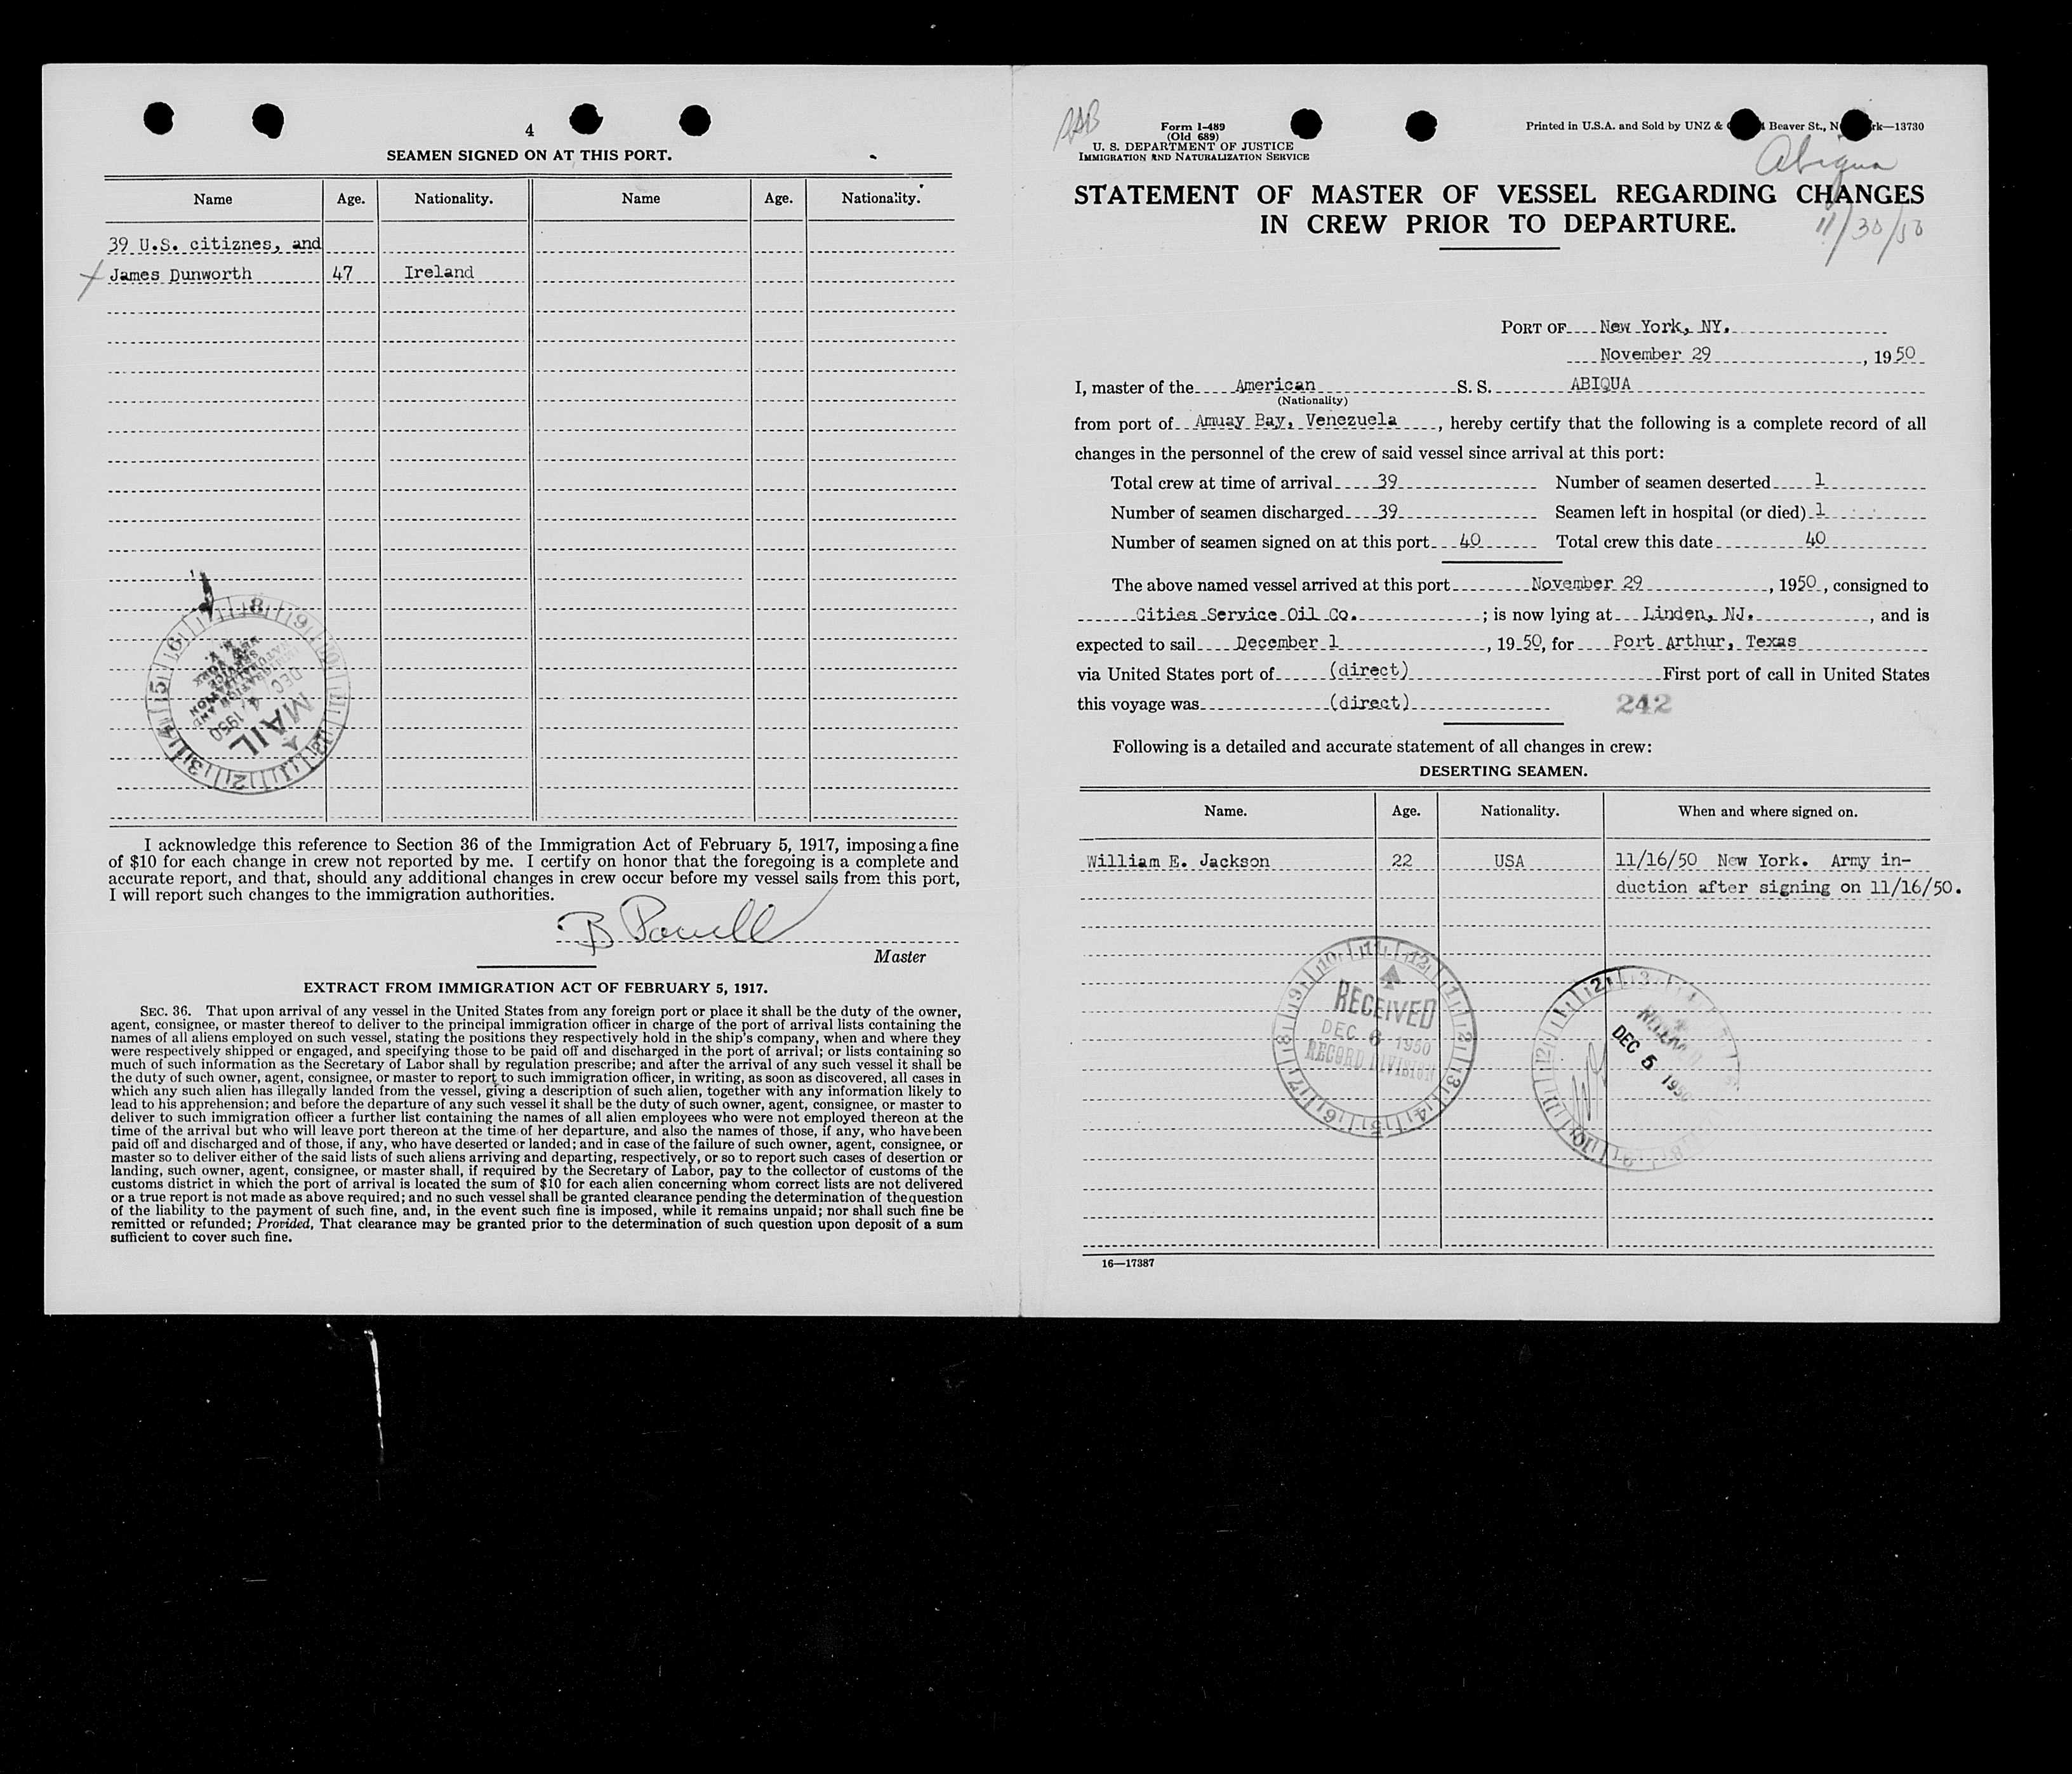 4
SEAMEN SIGNED ON AT THIS PORT.
Name Age. Nationality. Name Age. Nationality.
39 U.S. citiznes, and
James Dunworth 47 Ireland
MAIL
DEC 4 1950
I acknowledge this reference to Section 36 of the Immigration Act of February 5, 1917, imposing a fine
of $10 for each change in crew not reported by me. I certify on honor that the foregoing is a complete and
accurate report, and that, should any additional changes in crew occur before my vessel sails from this port,
I will report such changes to the immigration authorities.
B Powell
Master
EXTRACT FROM IMMIGRATION ACT OF FEBRUARY 5, 1917.
SEC. 36. That upon arrival of any vessel in the United States from any foreign port or place it shall be the duty of the owner,
agent, consignee, or master thereof to deliver to the principal immigration officer in charge of the port of arrival lists containing the
names of all aliens employed on such vessel, stating the positions they respectively hold in the ship's company, when and where they
were respectively shipped or engaged, and specifying those to be paid off and discharged in the port of arrival; or lists containing so
much of such information as the Secretary of Labor shall by regulation prescribe; and after the arrival of any such vessel it shall be
the duty of such owner, agent, consignee, or master to report to such immigration officer, in writing, as soon as discovered, all cases in
which any such alien has illegally landed from the vessel, giving a description of such alien, together with any information likely to
lead to his apprehension; and before the departure of any such vessel it shall be the duty of such owner, agent, consignee, or master to
deliver to such immigration officer a further list containing the names of all alien employees who were not employed thereon at the
time of the arrival but who will leave port thereon at the time of her departure, and also the names of those, if any, who have been
paid off and discharged and of those, if any, who have deserted or landed; and in case of the failure of such owner, agent, consignee, or
master so to deliver either of the said lists of such aliens arriving and departing, respectively, or so to report such cases of desertion or
landing, such owner, agent, consignee, or master shall, if required by the Secretary of Labor, pay to the collector of customs of the
customs district in which the port of arrival is located the sum of $10 for each alien concerning whom correct lists are not delivered
or a true report is not made as above required; and no such vessel shall be granted clearance pending the determination of the question
of the liability to the payment of such fine, and, in the event such fine is imposed, while it remains unpaid; nor shall such fine be
remitted or refunded; Provided, That clearance may be granted prior to the determination of such question upon deposit of a sum
sufficient to cover such fine.
Form I-489
(Old 689)
U. S. DEPARTMENT OF JUSTICE
IMMIGRATION AND NATURALIZATION SERVICE
Printed in U.S.A. and Sold by UNZ & Beaver St., N rk—13730
Abiqua
STATEMENT OF MASTER OF VESSEL REGARDING CHANGES
IN CREW PRIOR TO DEPARTURE.
11/30/50
PORT OF New York, NY.
November 29, 1950
I, master of the American S. S. ABIQUA
(Nationality)
from port of Amuay Bay, Venezuela, hereby certify that the following is a complete record of all
changes in the personnel of the crew of said vessel since arrival at this port:
Total crew at time of arrival 39 Number of seamen deserted 1
Number of seamen discharged 39 Seamen left in hospital (or died) 1
Number of seamen signed on at this port 40 Total crew this date 40
The above named vessel arrived at this port November 29, 1950, consigned to
Cities Service Oil Co.; is now lying at Linden, NJ., and is
expected to sail December 1, 1950, for Port Arthur, Texas
via United States port of (direct) First port of call in United States
this voyage was (direct) 242
Following is a detailed and accurate statement of all changes in crew:
DESERTING SEAMEN.
Name. Age. Nationality. When and where signed on.
William E. Jackson 22 USA 11/16/50 New York. Army in-
duction after signing on 11/16/50.
RECEIVED
DEC 6 1950
RECORD DIVISION
DEC 5 1950
16—17387